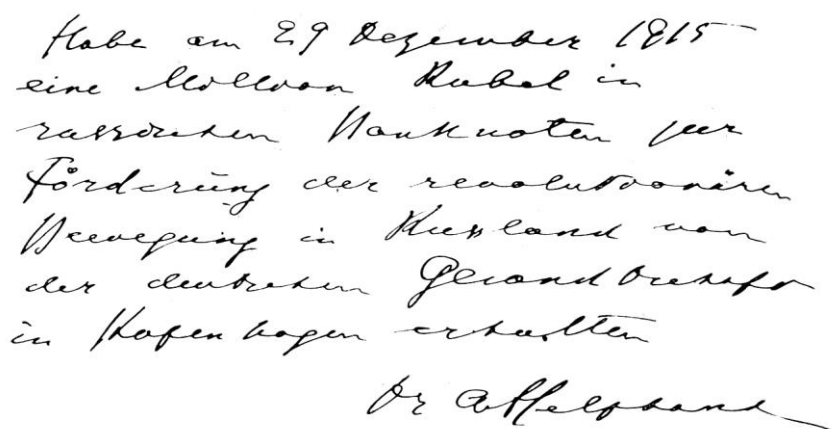 Habe am 29 Dezember 1915
eine Million Rubel in
russischen Banknoten zur
Förderung der revolutionären
Bewegung in Russland von
der deutschen Gesandtschaft
in Kopenhagen erhalten
Dr A Helphand